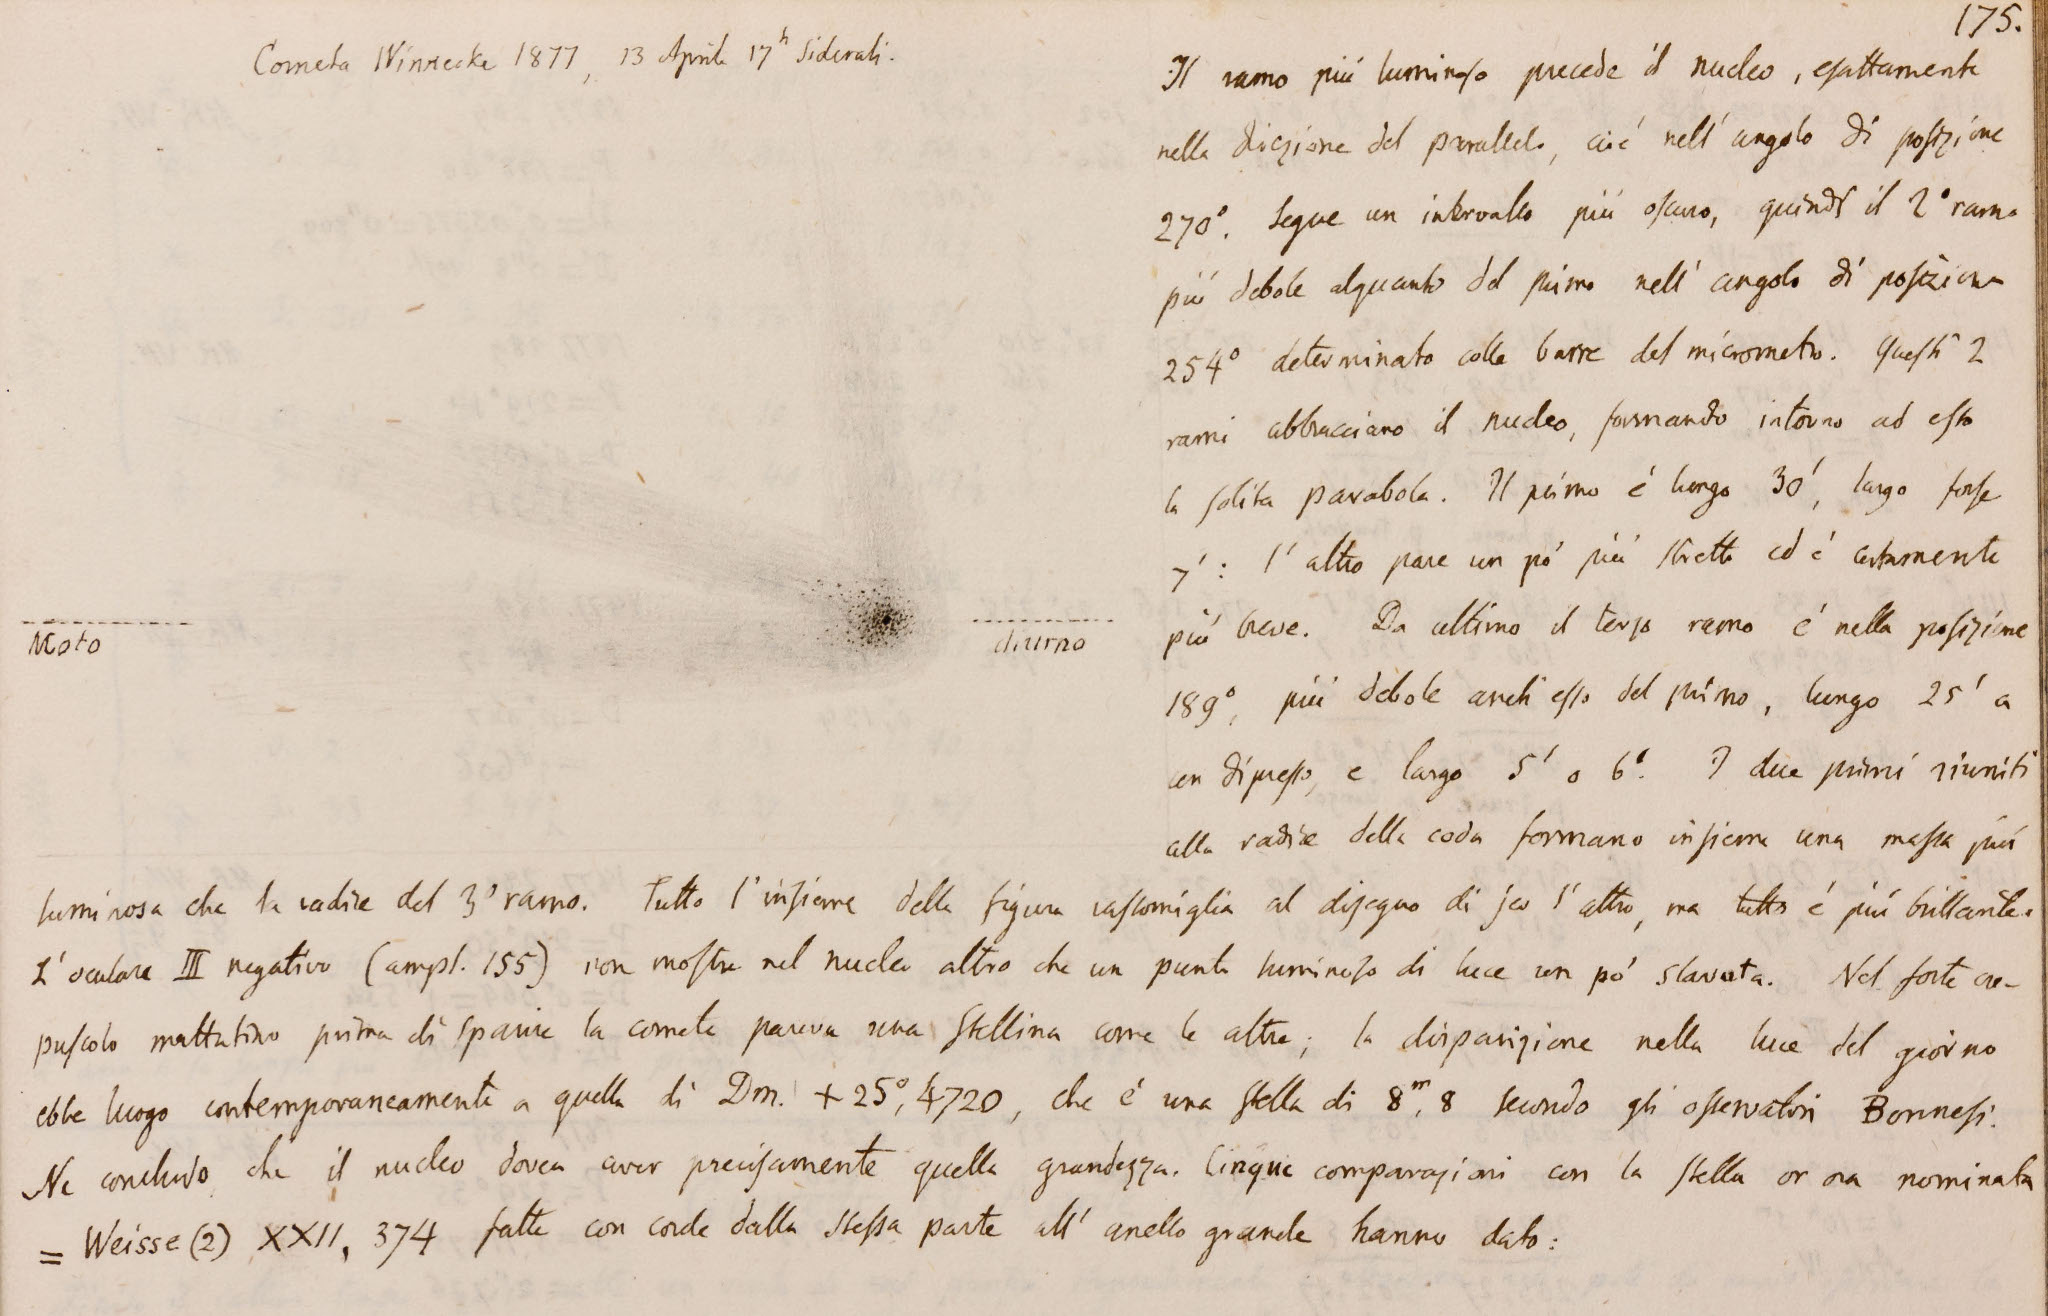 175.
Cometa Winnecke 1877, 13 Aprile 17h Siderali.
Moto
diurno
Il ramo più luminoso precede il nucleo, esattamente
nella direzione del parallelo, cioè nell' angolo di posizione
270°. Segue un intervallo più oscuro, quindi il 2° ramo
più debole alquanto del primo nell' angolo di posizione
254° determinato colle barre del micrometro. Questi 2
rami abbracciano il nucleo, formando intorno ad esso
la solita parabola. Il primo è lungo 30', largo forse
7': l' altro pare un pò più stretto ed è certamente
più breve. Da ultimo il terzo ramo è nella posizione
189°, più debole anch' esso del primo, lungo 25' a
un dipresso, e largo 5' o 6'. I due primi riuniti
alla radice della coda formano insieme una massa più
luminosa che la radice del 3° ramo. Tutto l' insieme della figura rassomiglia al disegno di jer l' altro, ma tutto è più brillante.
L' oculare III negativo (ampl. 155) non mostra nel nucleo altro che un punto luminoso di luce un pò slavata. Nel forte cre-
puscolo mattutino prima di sparire la cometa pareva una stellina come le altre; la disparizione nella luce del giorno
ebbe luogo contemporaneamente a quella di Dm. +25°, 4720, che è una stella di 8m,8 secondo gli osservatori Bonnesi.
Ne concludo che il nucleo dovea aver precisamente quella grandezza. Cinque comparazioni con la stella or ora nominata
= Weisse (2) XXII, 374 fatte con corde dalla stessa parte all' anello grande hanno dato: